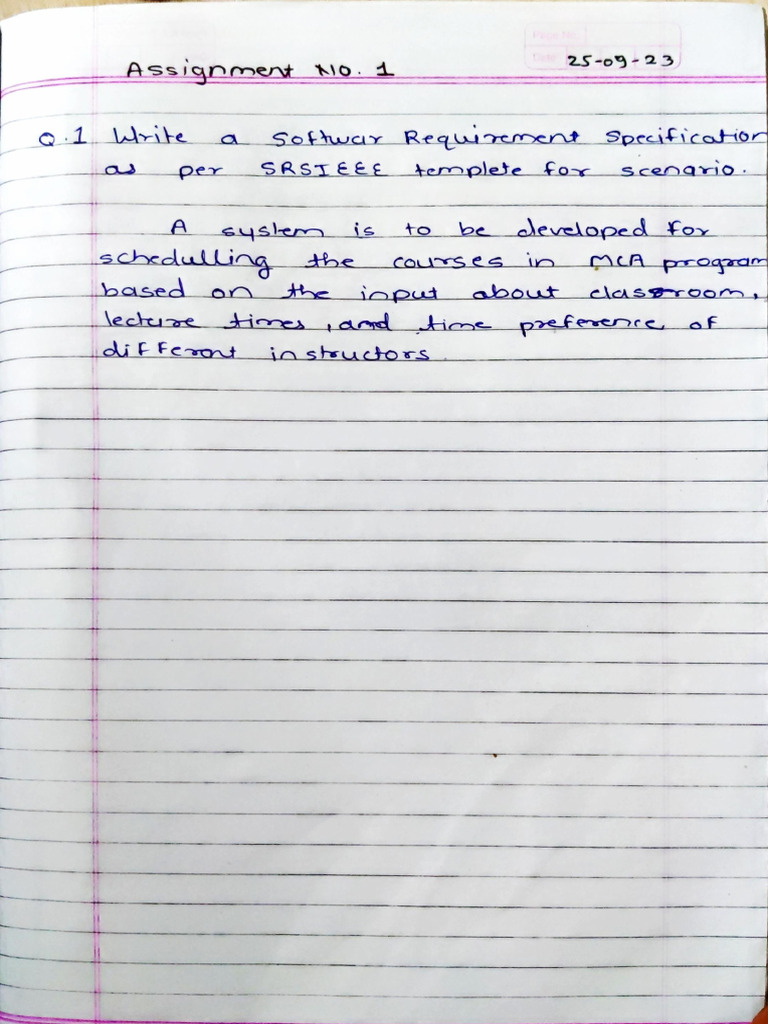 Page No.
Date 25-09-23
Assignment No. 1
Q.1 Write a Softwar Requirement Specification
as per SRSIEEE templete for scenario.
A system is to be developed for
schedulling the courses in MCA program
based on the input about classroom,
lecture times, and time preference of
different instructors.